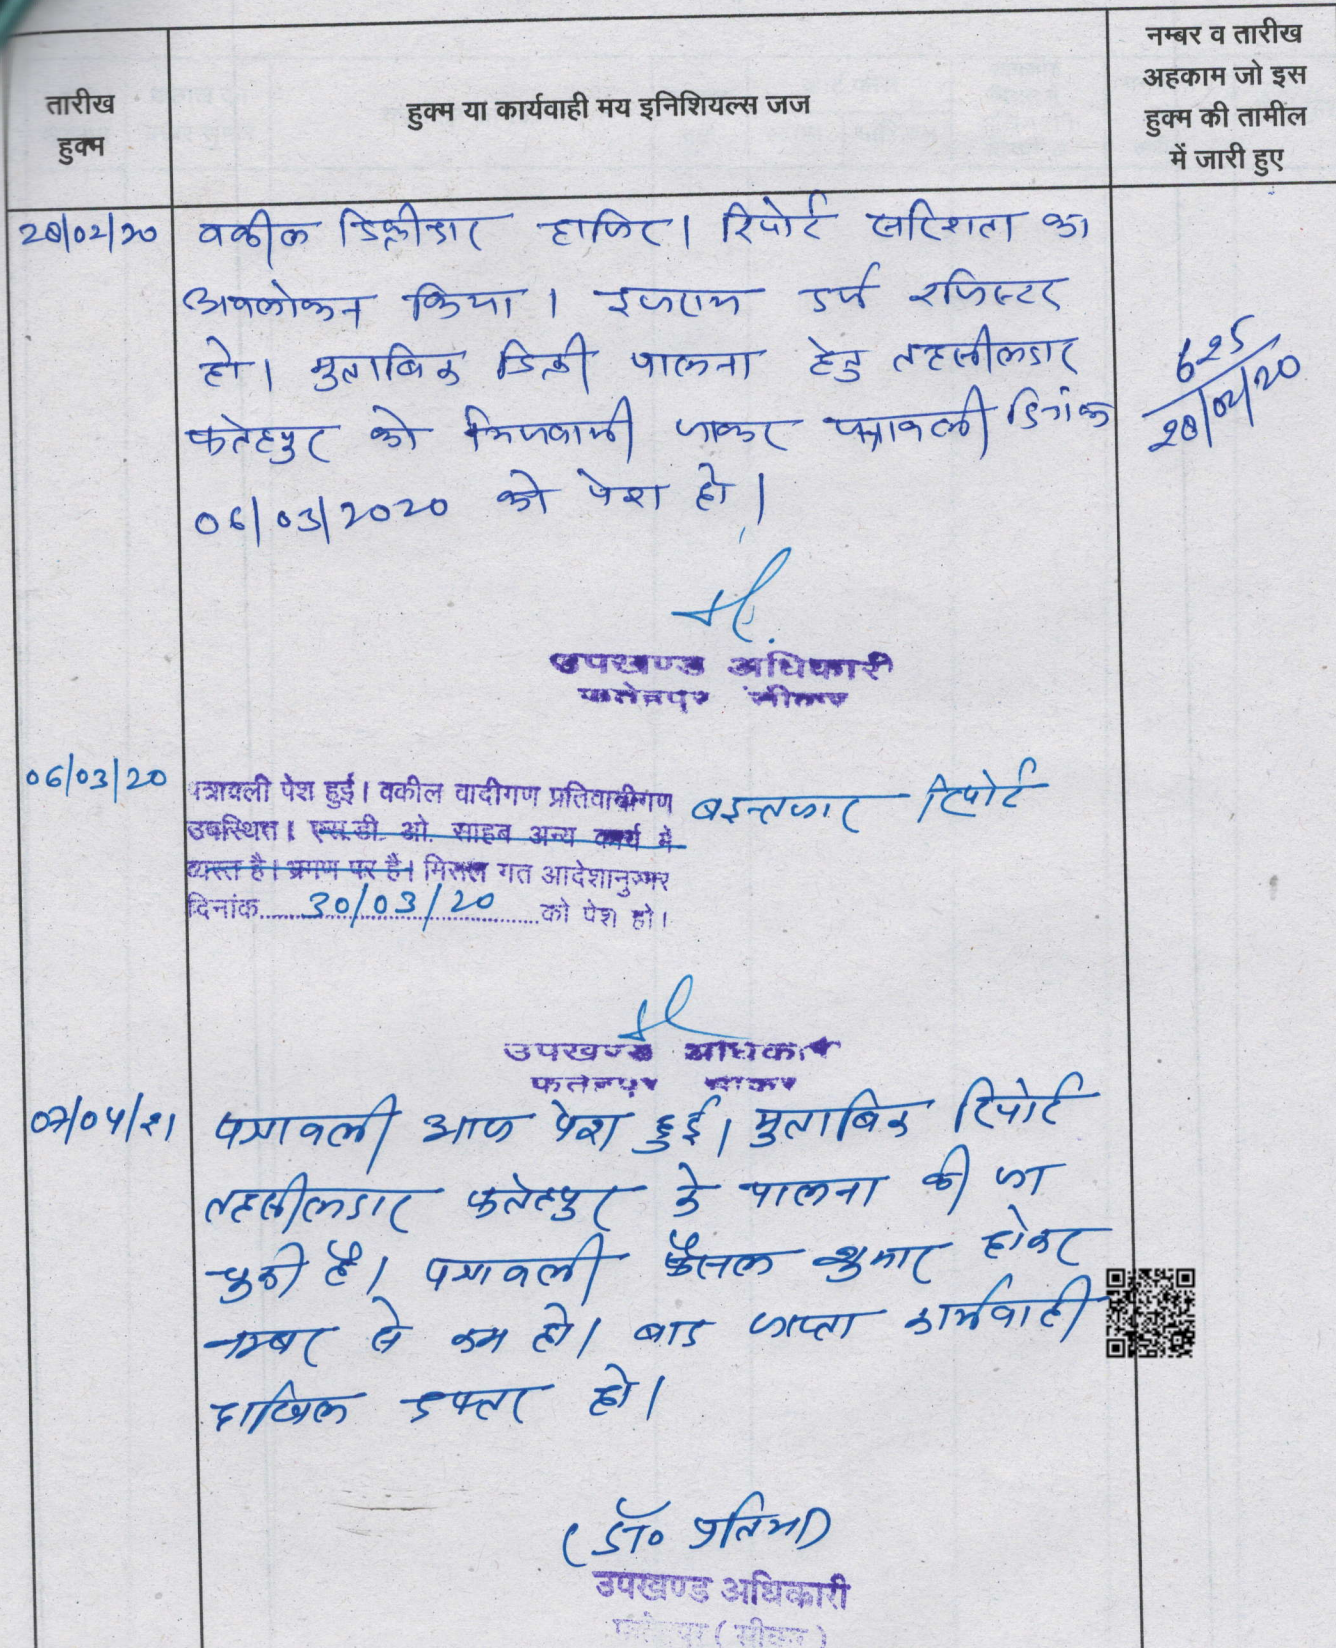 तारीख
हुक्म
हुक्म या कार्यवाही मय इनिशियल्स जज
नम्बर व तारीख
अहकाम जो इस
हुक्म की तामील
में जारी हुए
28/02/20
वकील डिक्रीदार हाजिर। रिपोर्ट सरिश्ता का
अवलोकन किया। इजराय दर्ज रजिस्टर
हो। मुताबिक डिक्री पालना हेतु तहसीलदार
फतेहपुर को भिजवायी जाकर पत्रावली दिनांक
06/03/2020 को पेश हो।
625
28/02/20
उपखण्ड अधिकारी
फतेहपुर सीकर
06/03/20
पत्रावली पेश हुई। वकील वादीगण प्रतिवादीगण
उपस्थित। एस.डी. ओ. साहब अन्य कार्य में
व्यस्त है। भ्रमण पर है। मिसल गत आदेशानुसार
दिनांक 30/03/20 को पेश हो।
बइन्तजार रिपोर्ट
उपखण्ड अधिकारी
फतेहपुर सीकर
07/04/21
पत्रावली आज पेश हुई। मुताबिक रिपोर्ट
तहसीलदार फतेहपुर के पालना की जा
चुकी है। पत्रावली फैसल शुमार होकर
नम्बर से कम हो। बाद जाप्ता कार्यवाही
दाखिल दफ्तर हो।
(डॉ०
उपखण्ड अधिकारी
फतेहपुर (सीकर)